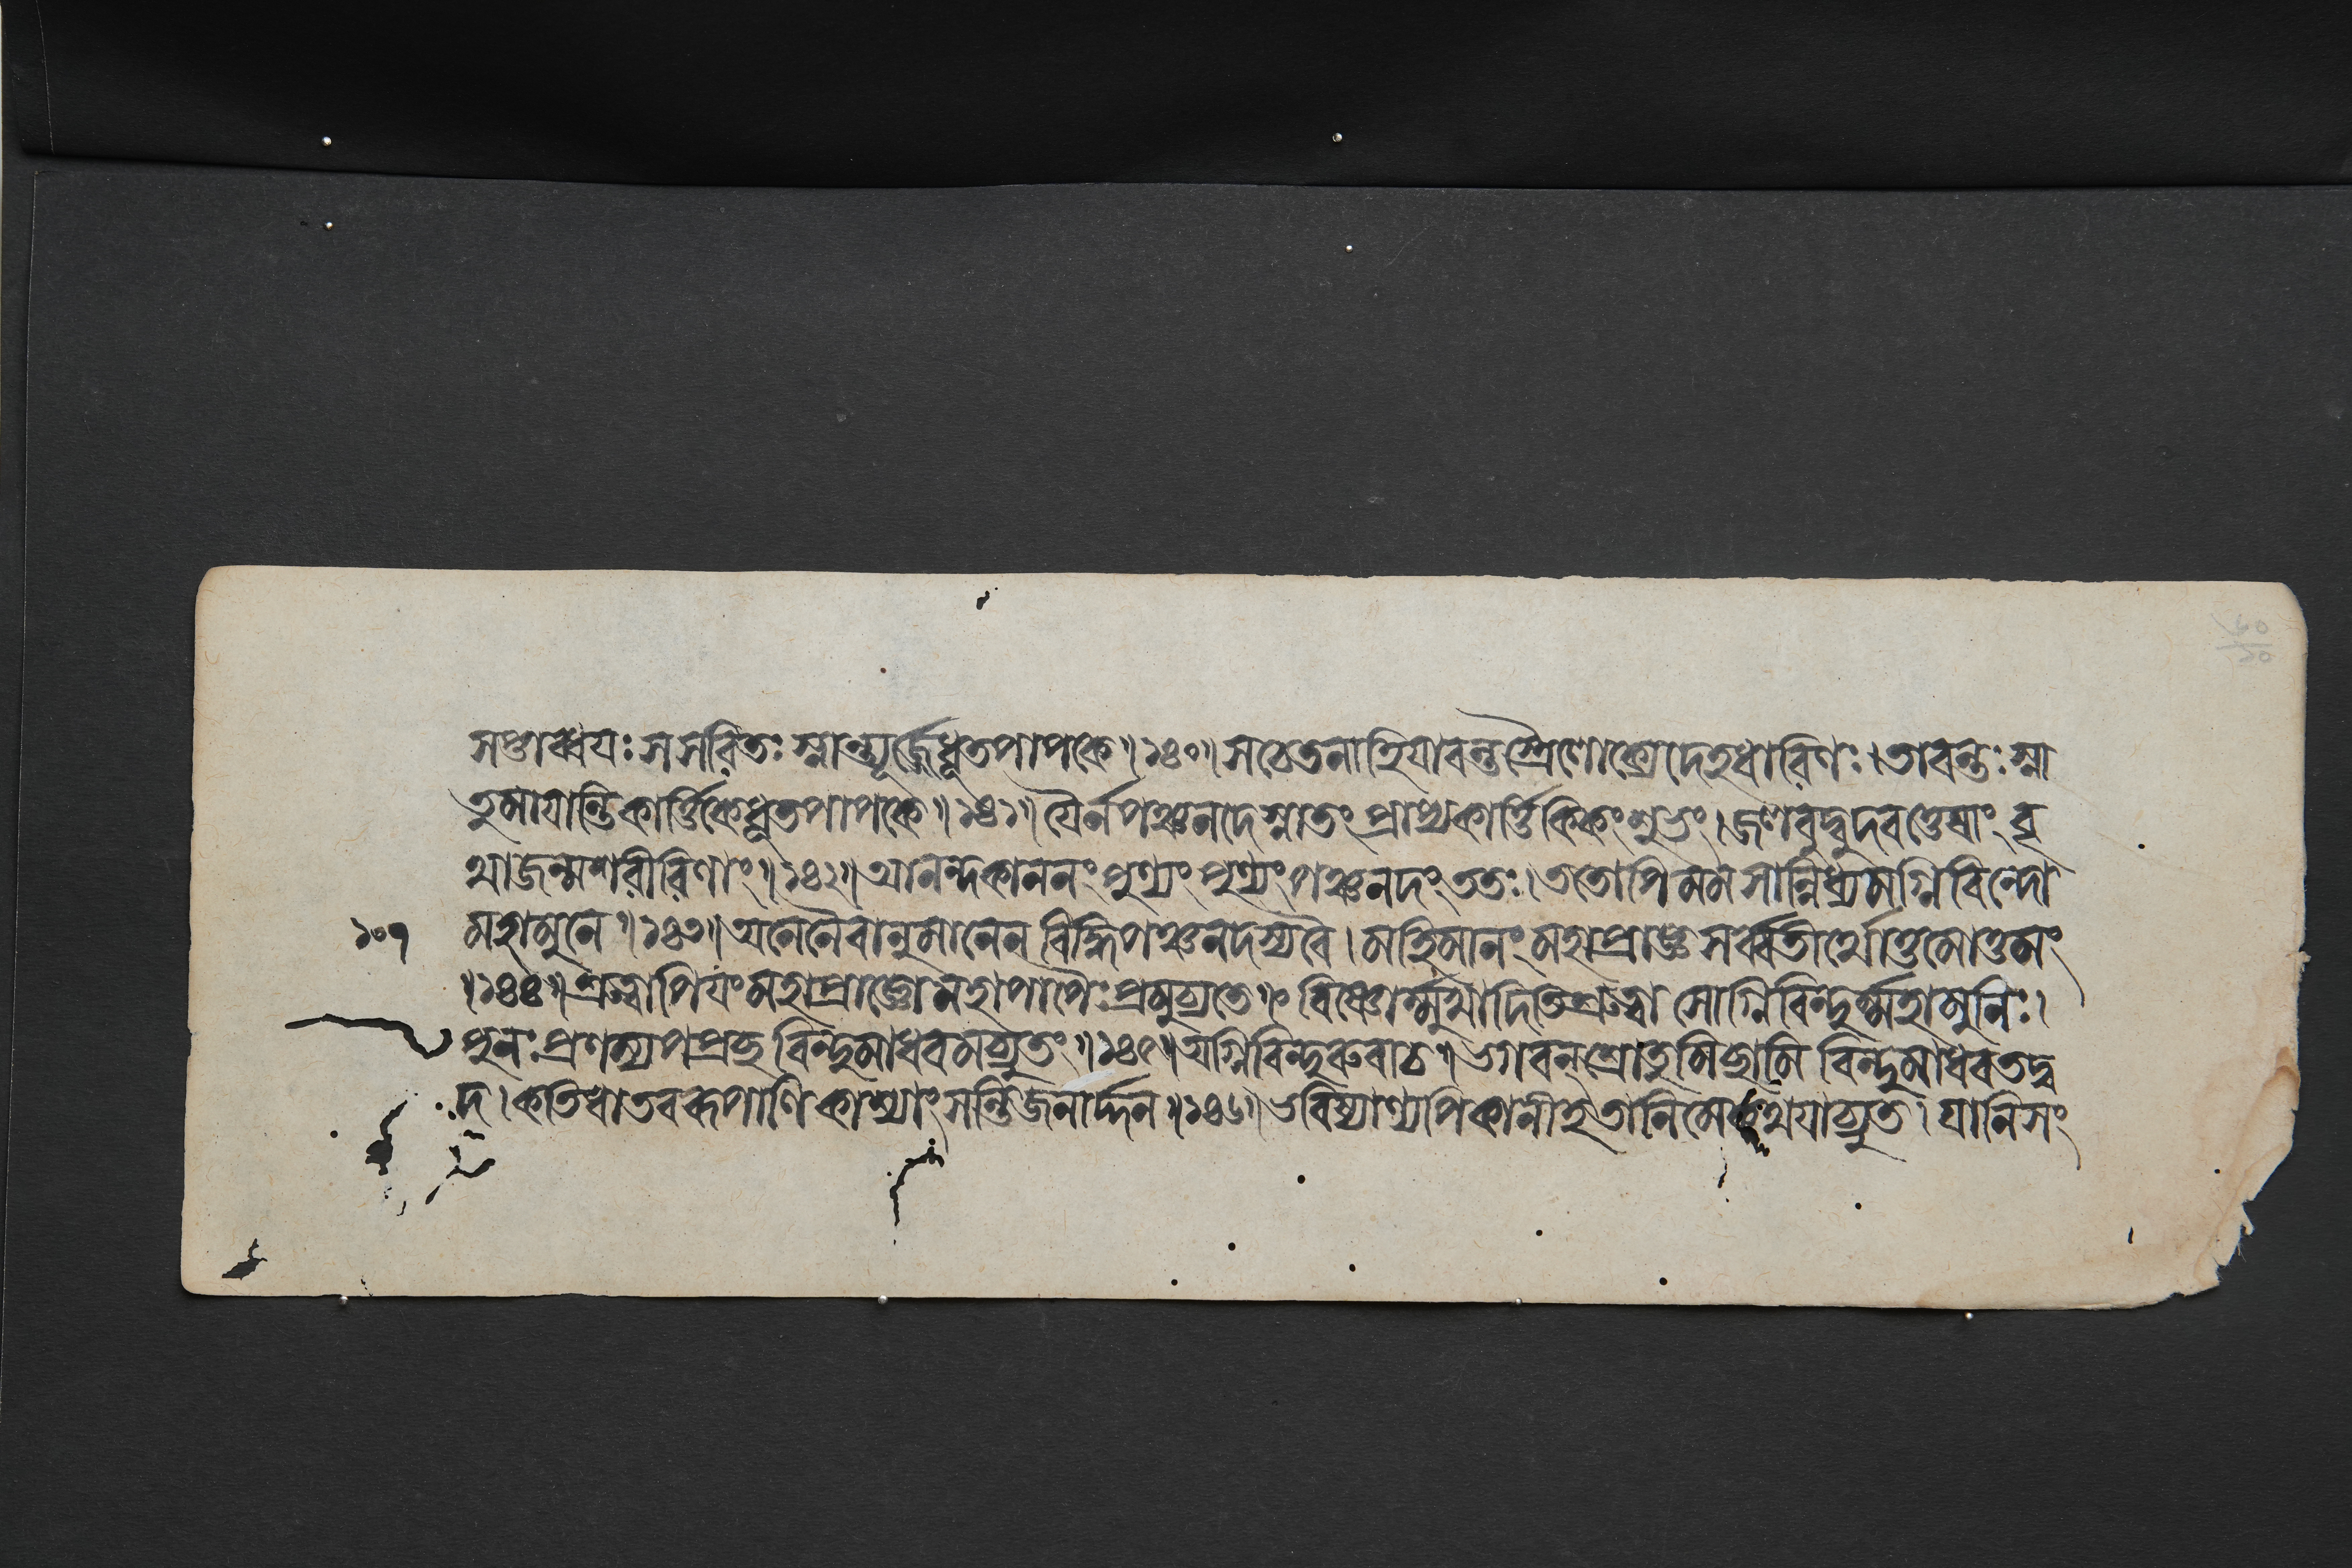 সপ্তাব্ধয়ঃ স সরিতঃ স্নান্ত্যূর্জ্জে ধূতপাপকে ॥১৪০॥ সচেতনা হি যাবন্তস্ত্রৈলোক্যে দেহধারিণঃ । তাবন্তঃ স্না
তুমায়ান্তি কার্ত্তিকে ধূতপাপকে ॥১৪১॥ যৈর্ন পঞ্চনদে স্নাতং প্রাপ্য কার্ত্তিকিকং শুভং । জলবুদ্বুদবত্তেষাং বৃ
থা জন্ম শরীরিণাং ॥১৪২॥ আনন্দকাননং পুণ্যং পুণ্যং পঞ্চনদং ততঃ । ততোপি মম সান্নিধ্যমগ্নিবিন্দো
১০৭
মহামুনে ॥১৪৩॥ অনেনৈবানুমানেন বিদ্ধি পঞ্চনদস্য বৈ । মহিমানং মহাপ্রাজ্ঞ সর্ব্বতীর্থোত্তমোত্তমং
॥১৪৪॥ শ্রুত্বাপিয়ং মহাপ্রাজ্ঞো মহাপাপৈঃ প্রমুচ্যতে । বিষ্ণোর্ম্মুখাদিতি শ্রুত্বা সোগ্নিবিন্দুর্ম্মহামুনিঃ ।
পুনঃ প্রণম্য পপ্রচ্ছ বিন্দুমাধবমচ্যুতং ॥১৪৫॥ অগ্নিবিন্দুরুবাচ ॥ ভগবন্ শ্রোতুমিচ্ছামি বিন্দুমাধব তদ্ব
দ । কতিধা তব রূপাণি কাশ্যাং সন্তি জনার্দ্দন ॥১৪৬॥ ভবিষ্যাণ্যপি কানীহ তানি মে কথয়াচ্যুত । যানি সং